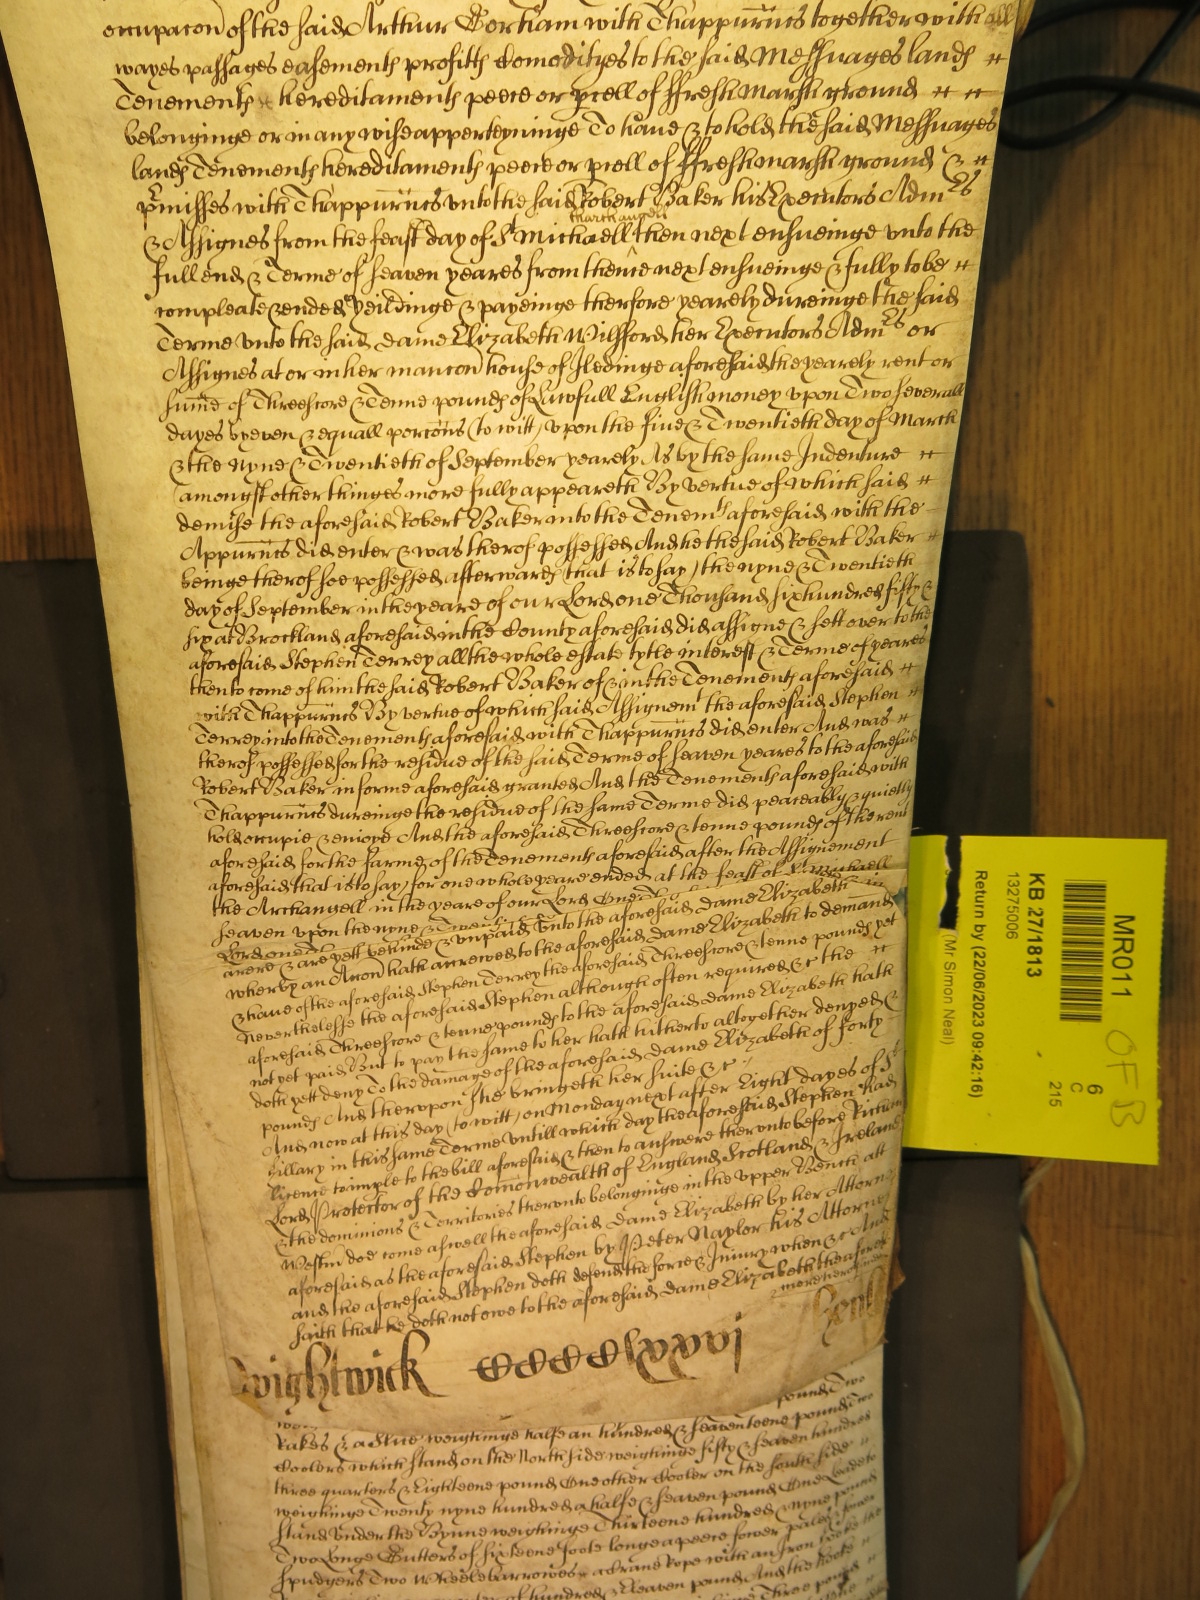 occupacon of the said Arthur Gorham with Thappurtn̄ts together with all
wayes passages easements profitts Comodityes to the said Messuages lands
Tenements & hereditaments peece or p̄cell of ffresh marsh ground
belonginge or in any wise apperteyninge To haue & to hold the said Messuages
lands Tenements hereditaments peece or p̄cell of ffresh marsh ground &
p̄misses with Thappurtn̄ts vnto the said Robert Baker his Executors Admrs
tharchangell
& Assignes from the feast day of St Michaell then next ensueinge vnto the
full end & Terme of seaven yeares from thence next ensueinge & fully to be
compleate & ended yeildinge & payeinge therfore yearely dureinge the said
Terme vnto the said dame Elizabeth Willford her Executors Admrs or
Assignes at or in her mancon house of Iledinge aforesaid the yearely rent or
sum̄e of Threescore & Tenne pounds of Lawfull English money vpon Two severall
dayes by even & equall porcōns (to witt) vpon the five & Twentieth day of March
& the Nyne & Twentieth of September yearely As by the same Indenture
amongst other thinges more fully appeareth By vertue of which said
demise the aforesaid Robert Baker into the Tenemts aforesaid with the
Appurtn̄ts did enter & was therof possessed And he the said Robert Baker
beinge therof soe possessed afterwards (that is to say) the nyne & Twentieth
day of September in the yeare of our Lord one Thousand six hundred fifty &
six at Brockland aforesaid in the County aforesaid did assigne & sett over to the
aforesaid Stephen Terrey all the whole estate tytle interest & Terme of yeares
then to come of him the said Robert Baker of & in the Tenements aforesaid
with Thappurtn̄ts By vertue of which said Assignemt the aforesaid Stephen
Terrey into the Tenements aforesaid with Thappurtn̄ts did enter And was
therof possessed for the residue of the said Terme of seaven yeares to the aforesaid
Robert Baker in forme aforesaid granted And the Tenements aforesaid with
Thappurtn̄ts dureinge the residue of the same Terme did peaceably & quietly
hold occupie & enioye And the aforesaid Threescore & tenne pounds of the rent
aforesaid for the farme of the Tenements aforesaid after the Assignement
aforesaid (that is to say) for one whole yeare ended at the feast of St Michaell
the Archangell in the yeare of our Lord One
seaven vpon the nyne & Twentieth
Lord one
arere & are yett behinde & vnpaid vnto the aforesaid dame Elizabeth
wherby an Accon hath accrewed to the aforesaid dame Elizabeth to demand
& haue of the aforesaid Stephen Terrey the aforesaid Threescore & tenne pounds yet
Neverthelesse the aforesaid Stephen although often required &c the
aforesaid Threescore & tenne pounds to the aforesaid dame Elizabeth hath
not yet paid But to pay the same to her hath hitherto altogether denyed &
doth yett deny To the damage of the aforesaid dame Elizabeth of forty
pounds And therupon she bringeth her suite &c
And now at this day (to witt) on Monday next after Eight dayes of St
Hillary in this same Terme vntill which day the aforesaid Stephen had
licence to imple to the bill aforesaid & then to answere thervnto before Richard
Lord Protector of the Comonwealth of England Scotland & Ireland
& the dominions & Territories thervnto belonginge in the vpper Bench att
Westm̄ doe come aswell the aforesaid dame Elizabeth by her Attorny
aforesaid as the aforesaid Stephen by Peter Naylor his Attorney
and the aforesaid Stephen doth defend the force & Iniury when &c And
saith that he doth not owe to the aforesaid dame Elizabeth the aforesd
more therof
Wightwick
Kent
pounds Two
Rakes & a slice weighinge halfe an hundred & seaventeene pounds Two
Coolers which stand on the North side weighinge fifty & seaven hundred
three quarters & Eighteene pounds One other Cooler on the south side
weighinge Twenty nyne hundred a halfe & seaven pounds One Lead to
stand vnder the weighinge Thirteene hundred & nyne pounds
Two longe Gutters of sixteene foote longe a peece
Two wheelebarrowes a Crane Rope with an Iron
hundred & Eleaven pounds And the
Three pounds
MR011
6
C
215
KB 27/1813
13275006
Return by (22/06/2023 09:42:16)
(Mr Simon Neal)
OFB